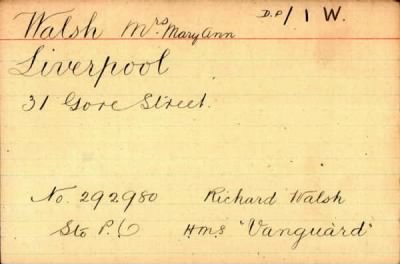 Walsh Mrs Mary Ann D.P/1 W.
Liverpool
31 Gore Street.
No. 292980 Richard Walsh
Sto P.O HMS "Vanguard"